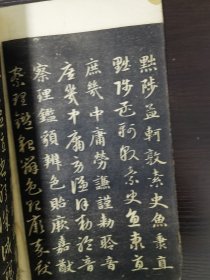 黜陟孟軻敦素史魚秉直
黜陟孟軻敦素史魚秉直
庶幾中庸勞謙謹勑聆音
庶幾中庸勞謙謹勑聆音
察理鑑貌辨色貽厥嘉猷
察理鑑貌辨色貽厥嘉猷